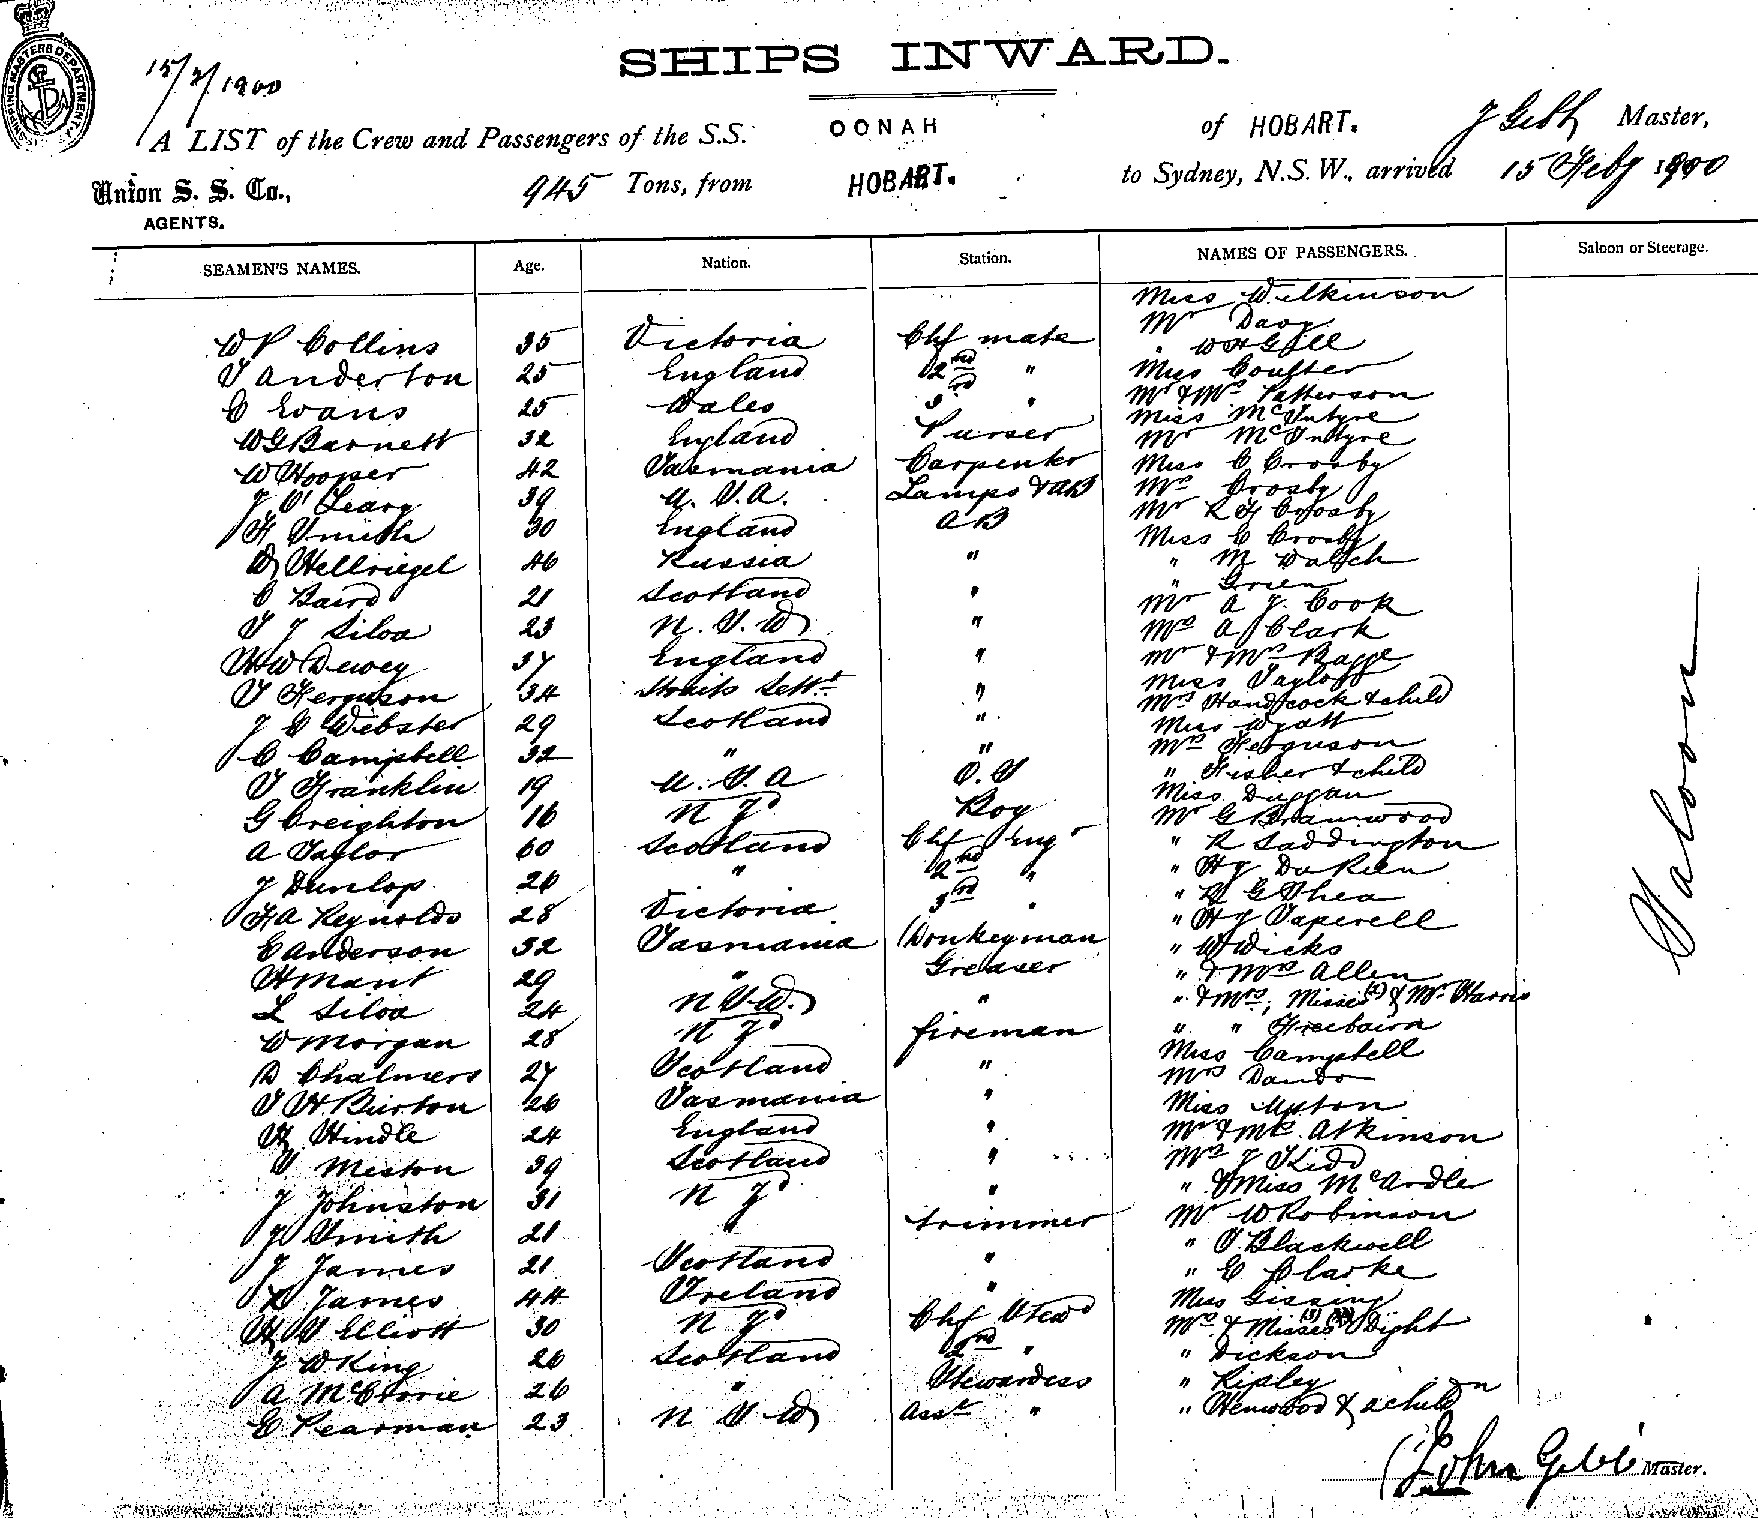 SHIPPING MASTERS DEPARTMENT
15/2/1900
SHIPS INWARD.
A LIST of the Crew and Passengers of the S.S. OONAH of HOBART. J Gibb Master,
Union S. S. Co., AGENTS.
945 Tons, from HOBART. to Sydney, N.S.W., arrived 15 Feby 1900
SEAMEN'S NAMES. Age. Nation. Station. NAMES OF PASSENGERS. Saloon or Steerage.
Miss Wilkinson
Mr Davy
W P Collins 35 Victoria Chf mate
" W H Gill
T Anderton 25 England 2nd "
Miss Coulter
C Evans 25 Wales 3rd "
Mr & Mrs Patterson
Miss McIntyre
W G Barnett 32 England Purser
Mr McIntyre
W Hooper 42 Tasmania Carpenter
Miss C Crosby
J O'Leary 39 U.S.A. Lamps & AB
Mrs Crosby
Mr R H Crosby
H Smith 30 England AB
Miss C Crosby
D Hellriegel 46 Russia "
" M Walsh
C Baird 21 Scotland "
" Green
Mr A J. Cook
T J Silva 23 N.S.W "
Mrs A J Clark
H W Dewey 37 England "
Mr & Mrs Bagge
T Ferguson 34 Straits Settt "
Miss Taylor
Mrs Handcock & child
J C Webster 29 Scotland "
Miss Wyatt
C Campbell 32 " "
Mrs Ferguson
T Franklin 19 U.S.A O.S
" Fisher & child
Miss Duggan
G Creighton 16 N Z Boy
Mr G Bramwood
A Taylor 60 Scotland Chf Engr
" R Saddington
J Dunlop 26 " 2nd "
" H J Du Rieu
H A Reynolds 28 Victoria 3rd "
" R G Shea
" H J Taperell
E Anderson 32 Tasmania Donkeyman
" W Dicks
H Mant 29 " Greaser
" & Mrs Allen
L Silva 24 N S W. "
" & Mrs, Misses (2) & Mr Harris
D Morgan 28 N Z fireman
" " Freebairn
D Chalmers 27 Scotland "
Miss Campbell
Mrs Dando
T H Burton 26 Tasmania "
Miss Upton
H Hindle 24 England "
Mr & Mrs Atkinson
T Meston 39 Scotland "
Mrs J Kidd
J Johnston 31 N Z "
" & Miss McArdler
J Smith 21 " trimmer
Mr W Robinson
" T. Blackwell
J James 21 Scotland "
" E Clarke
R James 44 Ireland "
Miss Gissing
H S Elliott 30 N Z Chf Stewd
Mrs & Misses Dight
J W King 26 Scotland 2nd "
" Dickson
A McClorie 26 " Stewardess
" Ripley
E Pearman 23 N S W Asst "
" Henwood & a child
Saloon
John Gibb Master.